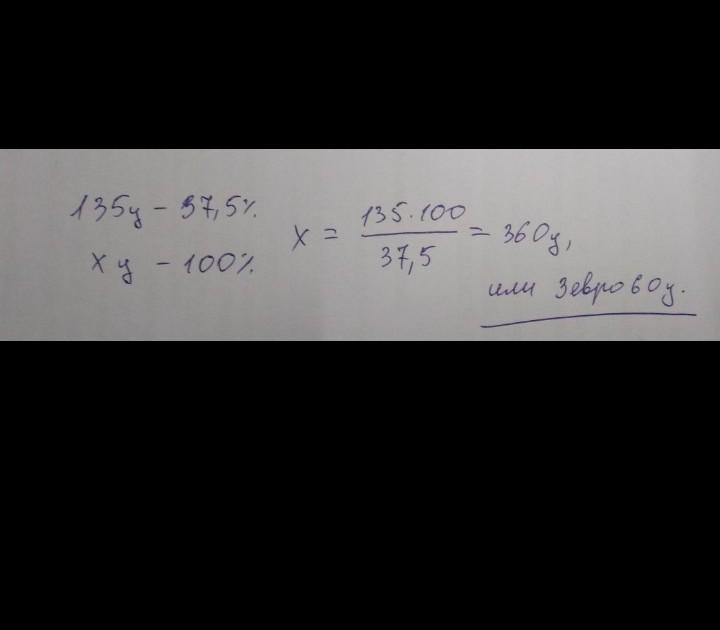 135ц - 37,5%
xц - 100%
x = 135·100 / 37,5 = 360ц,
или 3евро60ц.